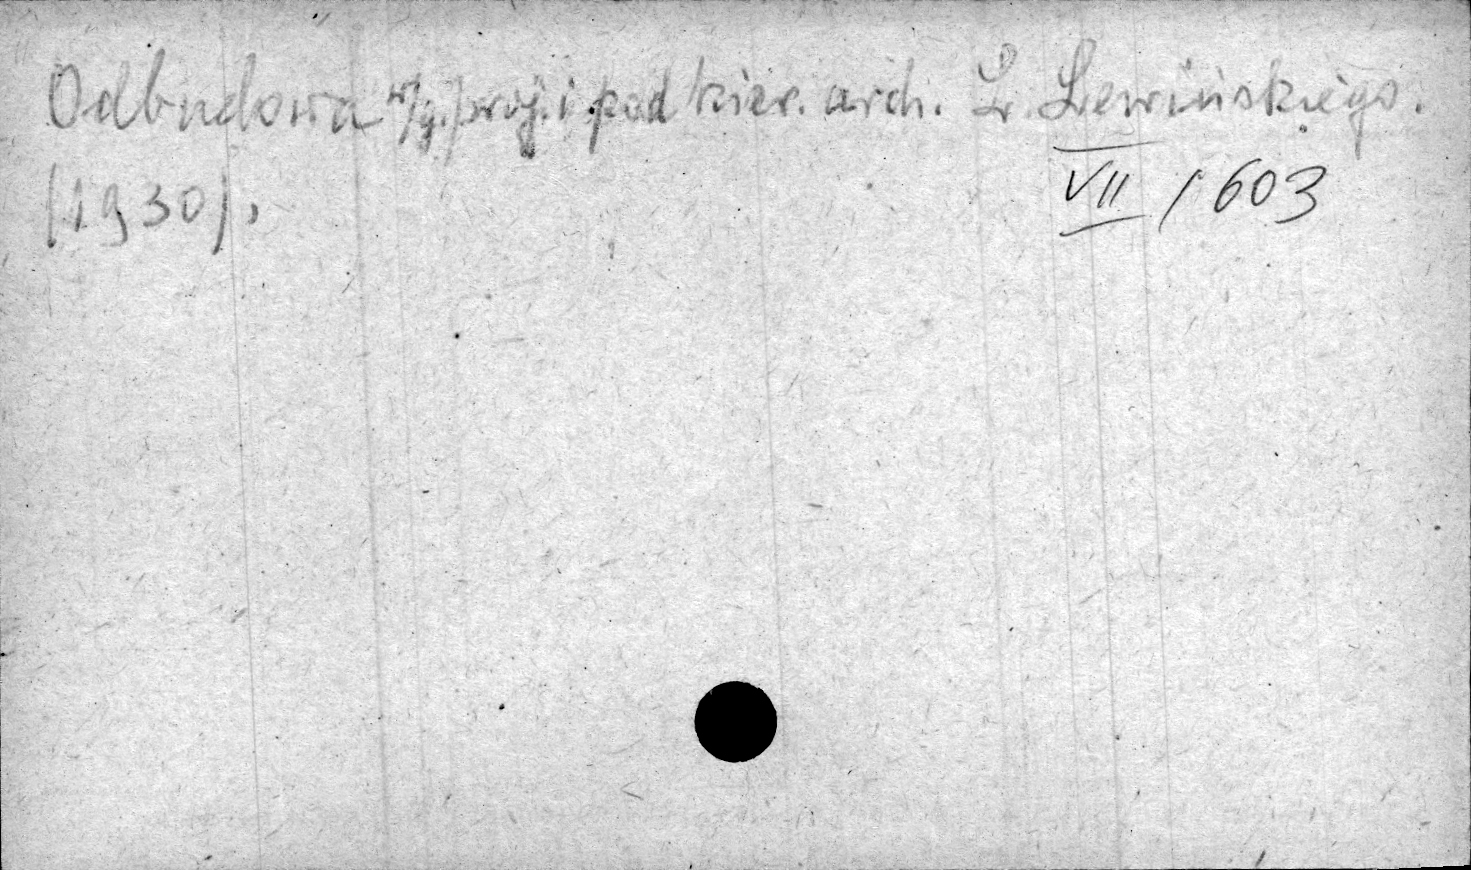 Odbudowa w/g. proj. i pod kier. arch. L. Lewińskiego.
(1930).
VII / 603